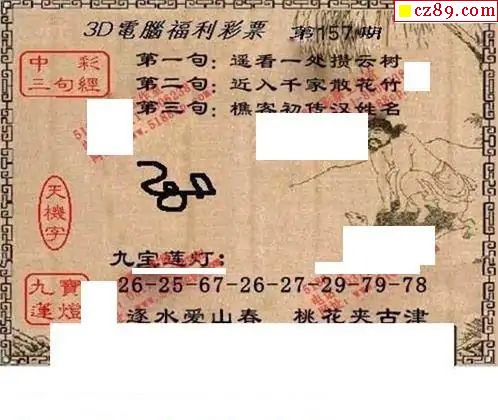 cz89.com
3D電腦福利彩票 第157期
中彩
三句經
第一句:遥看一处攒云树
第二句:近入千家散花竹
第三句:樵客初传汉姓名
天機字
九宝莲灯:
九寶蓮燈
26-25-67-26-27-29-79-78
逐水爱山春 桃花夹古津